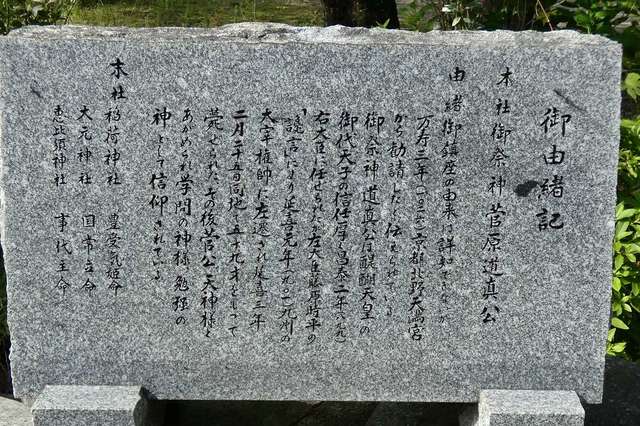 御由緒記
本社御祭神 菅原道真公
由緒 御鎮座の由来は詳かでないが
万寿三年(一〇二六)京都北野天満宮
から勧請したと伝えられている
御祭神 道真公は醍醐天皇の
御代天子の信任厚く昌泰二年(八九九)
右大臣に任ぜられたが左大臣藤原時平の
讒言により延喜元年(九〇一)九州の
太宰権帥に左遷され延喜三年
二月二十五日同地で五十九才をもって
薨ぜられた その後菅公は天神様と
あがめられ学問の神様、勉強の
神として信仰されている
末社 稲荷神社 豊受気姫命
大元神社 国常立命
恵比須神社 事代主命